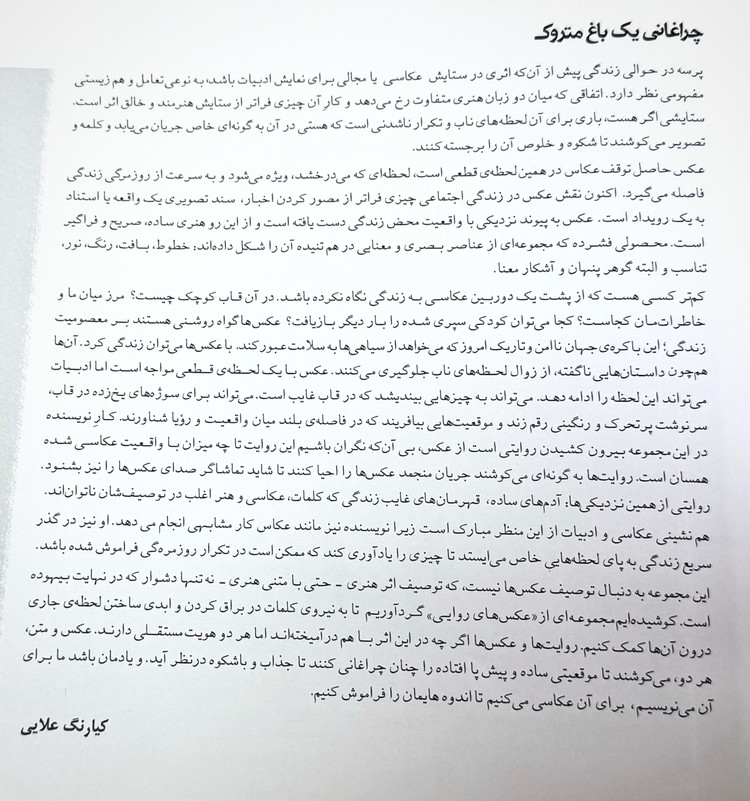 چراغانی یک باغ متروک
پرسه در حوالی زندگی پیش از آن‌که اثری در ستایش عکاسی یا مجالی برای نمایش ادبیات باشد، به نوعی تعامل و هم زیستی
مفهومی نظر دارد. اتفاقی که میان دو زبان هنری متفاوت رخ می‌دهد و کارِ آن چیزی فراتر از ستایش هنرمند و خالق اثر است.
ستایشی اگر هست، باری برای آن لحظه‌های ناب و تکرار ناشدنی است که هستی در آن به گونه‌ای خاص جریان می‌یابد و کلمه و
تصویر می‌کوشند تا شکوه و خلوص آن را برجسته کنند.
عکس حاصل توقف عکاس در همین لحظه‌ی قطعی است، لحظه‌ای که می‌درخشد، ویژه می‌شود و به سرعت از روزمرگی زندگی
فاصله می‌گیرد. اکنون نقش عکس در زندگی اجتماعی چیزی فراتر از مصور کردن اخبار، سند تصویری یک واقعه یا استناد
به یک رویداد است. عکس به پیوند نزدیکی با واقعیت محض زندگی دست یافته است و از این رو هنری ساده، صریح و فراگیر
است. محصولی فشرده که مجموعه‌ای از عناصر بصری و معنایی در هم تنیده آن را شکل داده‌اند؛ خطوط، بافت، رنگ، نور،
تناسب و البته گوهر پنهان و آشکار معنا.
کم‌تر کسی هست که از پشت یک دوربین عکاسی به زندگی نگاه نکرده باشد. در آن قاب کوچک چیست؟ مرز میان ما و
خاطرات‌مان کجاست؟ کجا می‌توان کودکی سپری شده را بار دیگر بازیافت؟ عکس‌ها گواه روشنی هستند بر معصومیت
زندگی؛ این باکره‌ی جهان ناامن و تاریک امروز که می‌خواهد از سیاهی‌ها به سلامت عبور کند. با عکس‌ها می‌توان زندگی کرد. آن‌ها
هم‌چون داستان‌هایی ناگفته، از زوال لحظه‌های ناب جلوگیری می‌کنند. عکس با یک لحظه‌ی قطعی مواجه است اما ادبیات
می‌تواند این لحظه را ادامه دهد. می‌تواند به چیزهایی بیندیشد که در قاب غایب است. می‌تواند برای سوژه‌های یخ‌زده در قاب،
سرنوشت پرتحرک و رنگینی رقم زند و موقعیت‌هایی بیافریند که در فاصله‌ی بلند میان واقعیت و رؤیا شناورند. کارِ نویسنده
در این مجموعه بیرون کشیدن روایتی است از عکس، بی آن‌که نگران باشیم این روایت تا چه میزان با واقعیت عکاسی شده
همسان است. روایت‌ها به گونه‌ای می‌کوشند جریان منجمد عکس‌ها را احیا کنند تا شاید تماشاگر صدای عکس‌ها را نیز بشنود.
روایتی از همین نزدیکی‌ها؛ آدم‌های ساده، قهرمان‌های غایب زندگی که کلمات، عکاسی و هنر اغلب در توصیف‌شان ناتوان‌اند.
هم نشینی عکاسی و ادبیات از این منظر مبارک است زیرا نویسنده نیز مانند عکاس کار مشابهی انجام می دهد. او نیز در گذر
سریع زندگی به پای لحظه‌هایی خاص می‌ایستد تا چیزی را یادآوری کند که ممکن است در تکرار روزمره‌گی فراموش شده باشد.
این مجموعه به دنبال توصیف عکس‌ها نیست، که توصیف اثر هنری - حتی با متنی هنری - نه‌تنها دشوار که در نهایت بیهوده
است. کوشیده‌ایم مجموعه‌ای از «عکس‌های روایی» گردآوریم تا به نیروی کلمات در براق کردن و ابدی ساختن لحظه‌ی جاری
درون آن‌ها کمک کنیم. روایت‌ها و عکس‌ها اگر چه در این اثر با هم درآمیخته‌اند اما هر دو هویت مستقلی دارند. عکس و متن،
هر دو، می‌کوشند تا موقعیتی ساده و پیش پا افتاده را چنان چراغانی کنند تا جذاب و باشکوه درنظر آید. و یادمان باشد ما برای
آن می‌نویسیم، برای آن عکاسی می‌کنیم تا اندوه هایمان را فراموش کنیم.
کیارنگ علایی